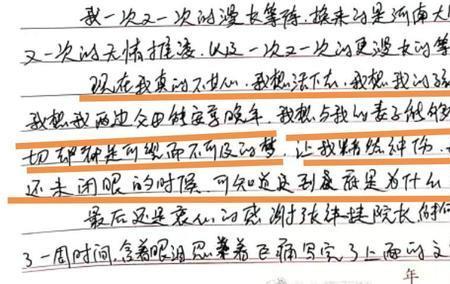 我一次又一次的漫长等降,换来的是河南大
又一次的无情推诿,以及一次又一次的更漫长的等
现在我真的不甘心,我想活下去,我想我的
我想我两边父母能安享晚年,我想与我的妻子能
切却都是可望而不可及的梦,让我精
还未闭眼的时候,可知道这到底是为什么
最后还是衷心的感谢张 院长
了一周时间,含着眼泪忍着悲痛写完了上面的文
年